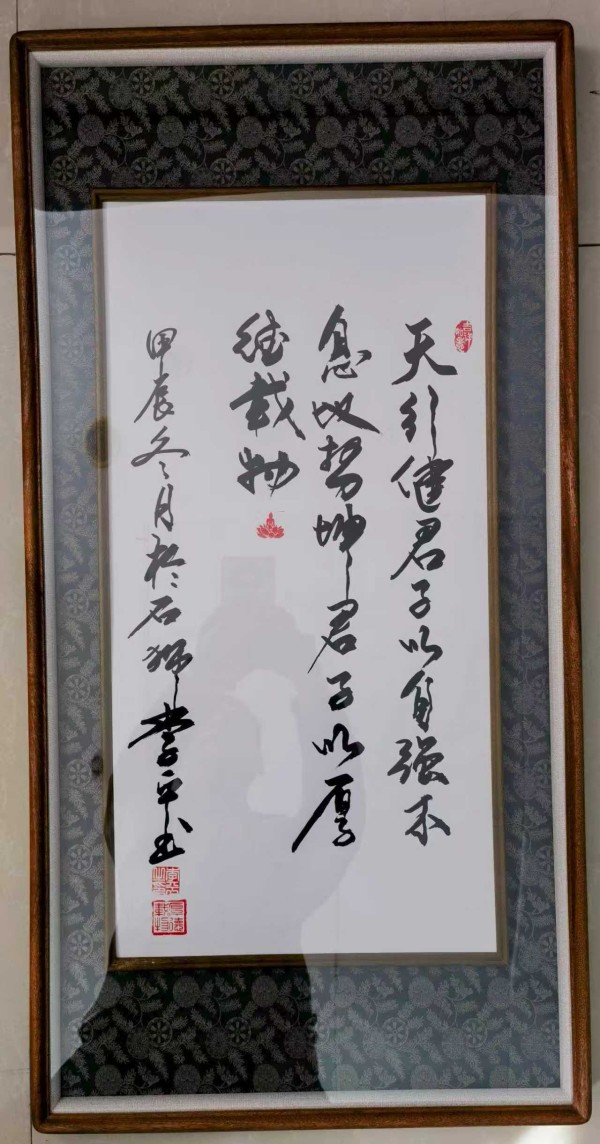 天行健君子以自强不
息地势坤君子以厚
德載物
甲辰冬月於石狮李平书